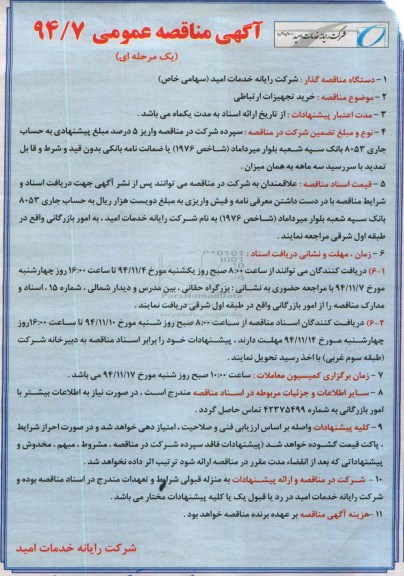 شرکت رایانه خدمات امید
آگهی مناقصه عمومی ۹۴/۷
(یک مرحله ای)
۱ - دستگاه مناقصه گذار : شرکت رایانه خدمات امید (سهامی خاص)
۲ - موضوع مناقصه : خرید تجهیزات ارتباطی
۳ - مدت اعتبار پیشنهادات : از تاریخ ارائه اسناد به مدت یکماه می باشد .
۴ - نوع و مبلغ تضمین شرکت در مناقصه : سپرده شرکت در مناقصه واریز ۵ درصد مبلغ پیشنهادی به حساب
جاری ۸۰۵۳ بانک سپه شعبه بلوار میرداماد (شاخص ۱۹۷۶) یا ضمانت نامه بانکی بدون قید و شرط و قابل
تمدید با سررسید سه ماهه به همان میزان .
۵ - قیمت اسناد مناقصه : علاقمندان به شرکت در مناقصه می توانند پس از نشر آگهی جهت دریافت اسناد و
شرایط مناقصه با در دست داشتن معرفی نامه و فیش واریزی به مبلغ دویست هزار ریال به حساب جاری ۸۰۵۳
بانک سپه شعبه بلوار میرداماد (شاخص ۱۹۷۶) به نام شرکت رایانه خدمات امید ، به امور بازرگانی واقع در
طبقه اول شرقی مراجعه نمایند .
۶ - زمان ، مهلت و نشانی دریافت اسناد :
۶-۱) دریافت کنندگان می توانند از ساعت ۸:۰۰ صبح روز یکشنبه مورخ ۹۴/۱۱/۴ تا ساعت ۱۶:۰۰ روز چهارشنبه
مورخ ۹۴/۱۱/۷ با مراجعه حضوری به نشانی : بزرگراه حقانی ، بین مدرس و دیدار شمالی ، شماره ۱۵ ، اسناد و
مدارک مناقصه را از امور بازرگانی واقع در طبقه اول شرقی دریافت نمایند .
ParsNamadData
۶-۲) دریافت کنندگان اسناد مناقصه از ساعت ۸:۰۰ صبح روز شنبه مورخ ۹۴/۱۱/۱۰ تا ساعت ۱۶:۰۰ روز
چهارشنبه مورخ ۹۴/۱۱/۱۴ مهلت دارند ، پیشنهادات خود را برابر اسناد مناقصه به دبیرخانه شرکت
(طبقه سوم غربی) با اخذ رسید تحویل نمایند .
۷ - زمان برگزاری کمیسیون معاملات : ساعت ۱۰:۰۰ صبح روز شنبه مورخ ۹۴/۱۱/۱۷ می باشد .
۸ - سایر اطلاعات و جزئیات مربوطه در اسناد مناقصه مندرج است ، در صورت نیاز به اطلاعات بیشتر با
امور بازرگانی به شماره ۴۲۳۷۵۴۹۹ تماس حاصل گردد .
۹ - کلیه پیشنهادات واصله بر اساس ارزیابی فنی و صلاحیت ، امتیاز دهی خواهد شد و در صورت احراز شرایط
، پاکت قیمت گشوده خواهد شد (پیشنهادات فاقد سپرده شرکت در مناقصه ، مشروط ، مبهم ، مخدوش و
پیشنهاداتی که بعد از انقضاء مدت مقرر در مناقصه ارائه شود ترتیب اثر داده نخواهد شد .
۱۰ - شرکت در مناقصه و ارائه پیشنهادات به منزله قبولی شرایط و تعهدات مندرج در اسناد مناقصه بوده و
شرکت رایانه خدمات امید در رد یا قبول یک یا کلیه پیشنهادات مختار می باشد .
۱۱ -هزینه آگهی مناقصه بر عهده برنده مناقصه خواهد بود .
شرکت رایانه خدمات امید